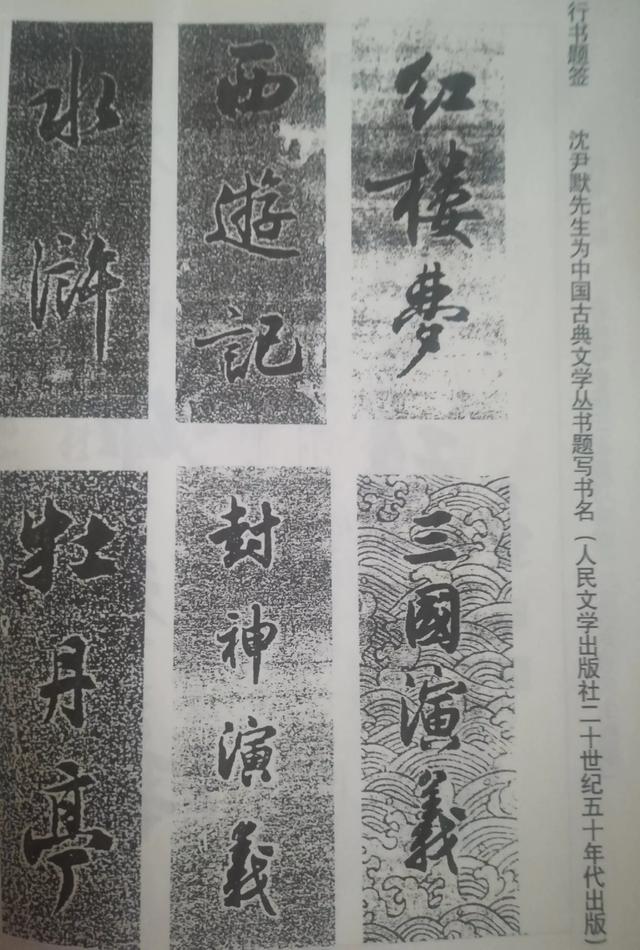 行书题签 沈尹默先生为中国古典文学丛书题写书名（人民文学出版社二十世纪五十年代出版）
红楼梦
西遊記
水浒
三國演義
封神演義
牡丹亭